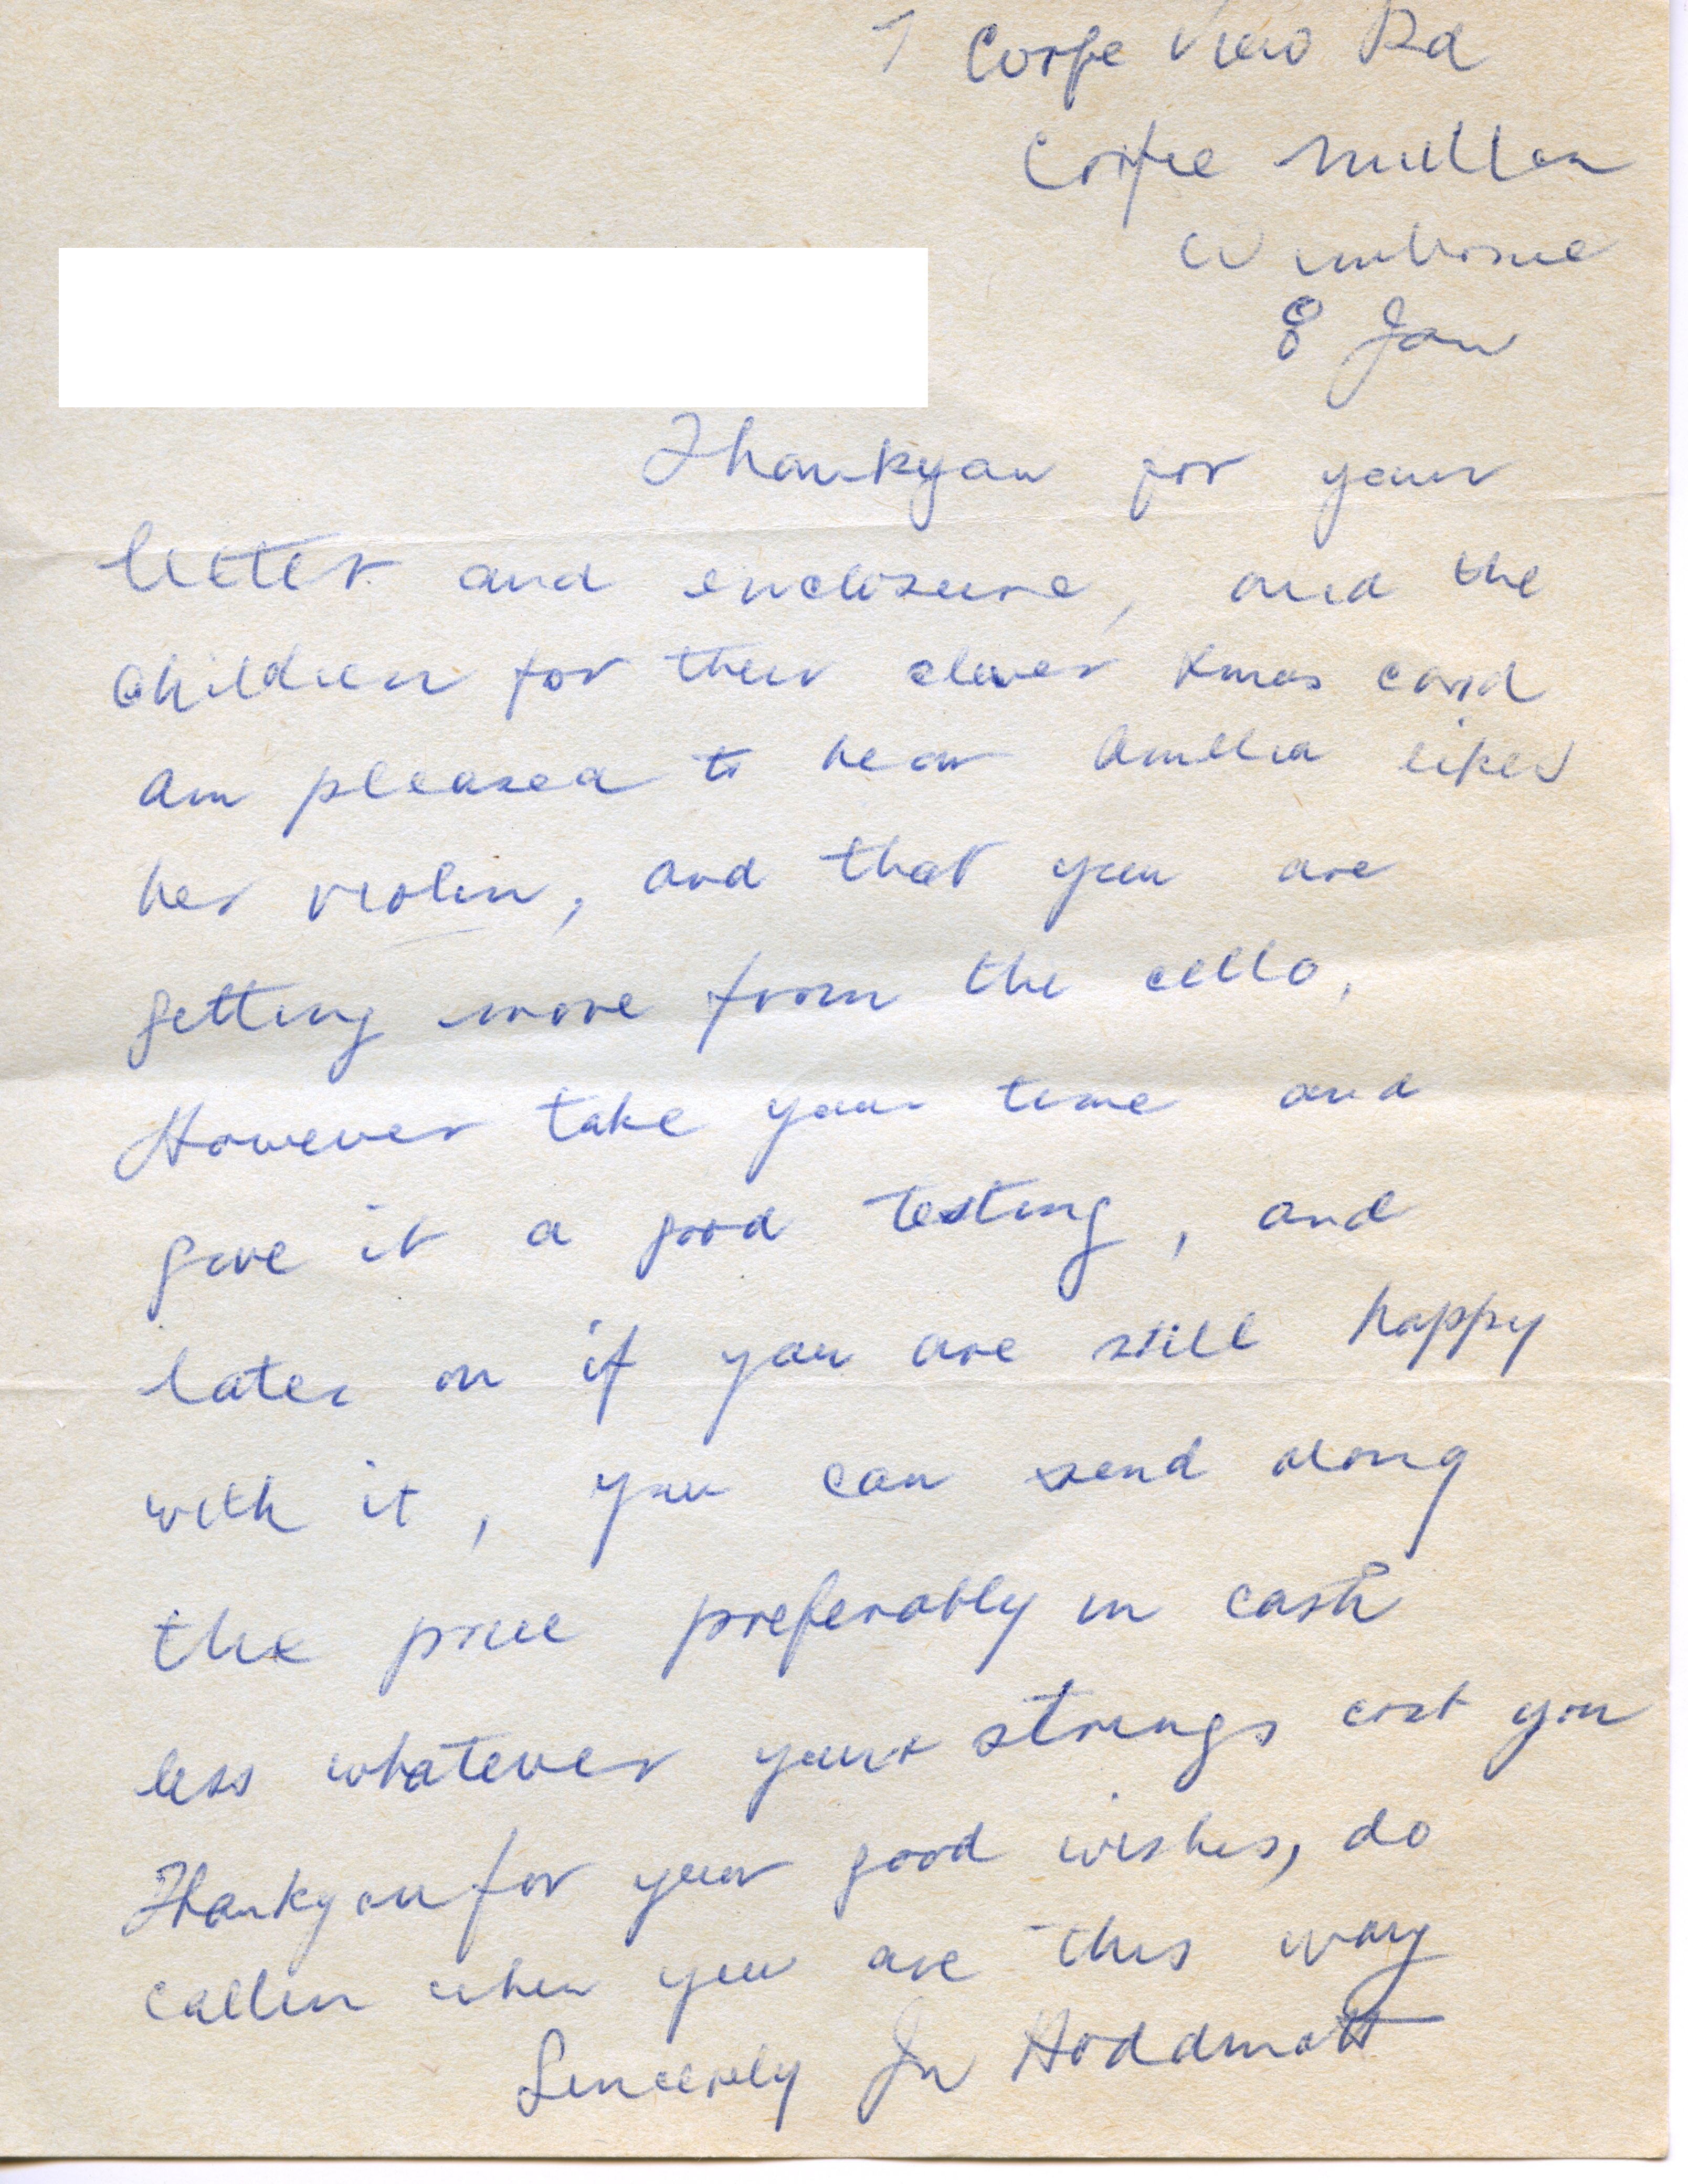 7 Corfe View Rd
Corfe Mullen
Wimborne
8 Jan
Thankyou for your
letter and enclosure, and the
children for their clever Xmas card
am pleased to hear Amelia likes
her violin, and that you are
getting more from the cello,
However take your time and
give it a good testing, and
later on if you are still happy
with it, you can send along
the price preferably in cash
less whatever your strings cost you
Thankyou for your good wishes, do
callin when you are this way
Sincerely Jn Hoddmott